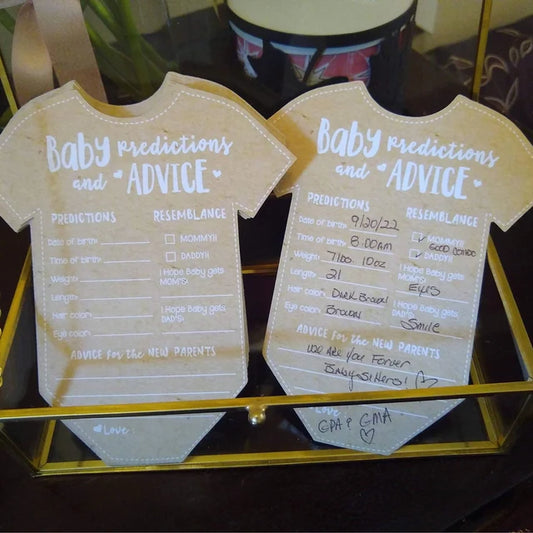 Baby Predictions
and ADVICE
PREDICTIONS RESEMBLANCE
Date of birth: MOMMY!!
Time of birth: DADDY!!
Weight: I Hope Baby gets
MOM'S:
Length:
Hair color: I Hope Baby gets
DAD'S:
Eye color:
ADVICE FOR THE NEW PARENTS
Love:
Baby Predictions
and ADVICE
PREDICTIONS RESEMBLANCE
Date of birth: 9/20/22 MOMMY!!
GOOD
Time of birth: 8:00AM DADDY!!
Weight: 7lbs. 10oz I Hope Baby gets
MOM'S:
Length: 21 Eyes
Hair color: Dark Brown I Hope Baby gets
DAD'S:
Eye color: Brown Smile
ADVICE FOR THE NEW PARENTS
We Are You Forever
Baby Sitters!
Love:
GPA & GMA